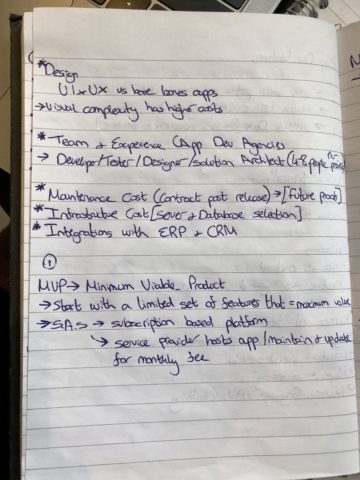 *Design
UI & UX vs bare bones apps
→ Visual complexity has higher costs
* Team & Experience (App Dev Agencies
→ Developer/Tester/Designer/Solution Architect (4-8 people per
* Maintenance Cost (Contract post release) → [Future proofs]
* Infrastrutive Cost [Server & Database selection]
* Integrations with ERP & CRM
①
MVP → Minimum Viable Product
→ Start with a limited set of features that = maximum value
→ S.A.S → subscription based platform
↳ service provider hosts app/maintain & update
for monthly fee